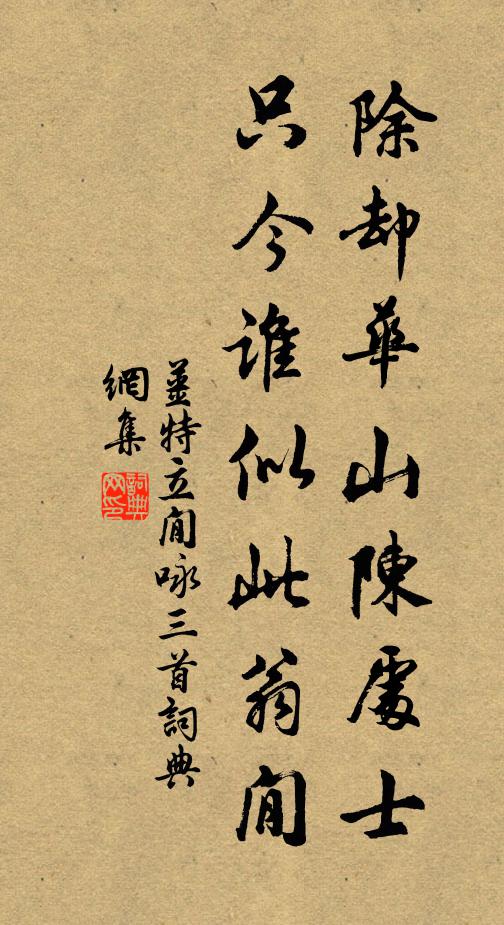 除却華山陳處士
只今誰似此翁閒
姜特立閒咏三首詞典
網集
詞典
网印